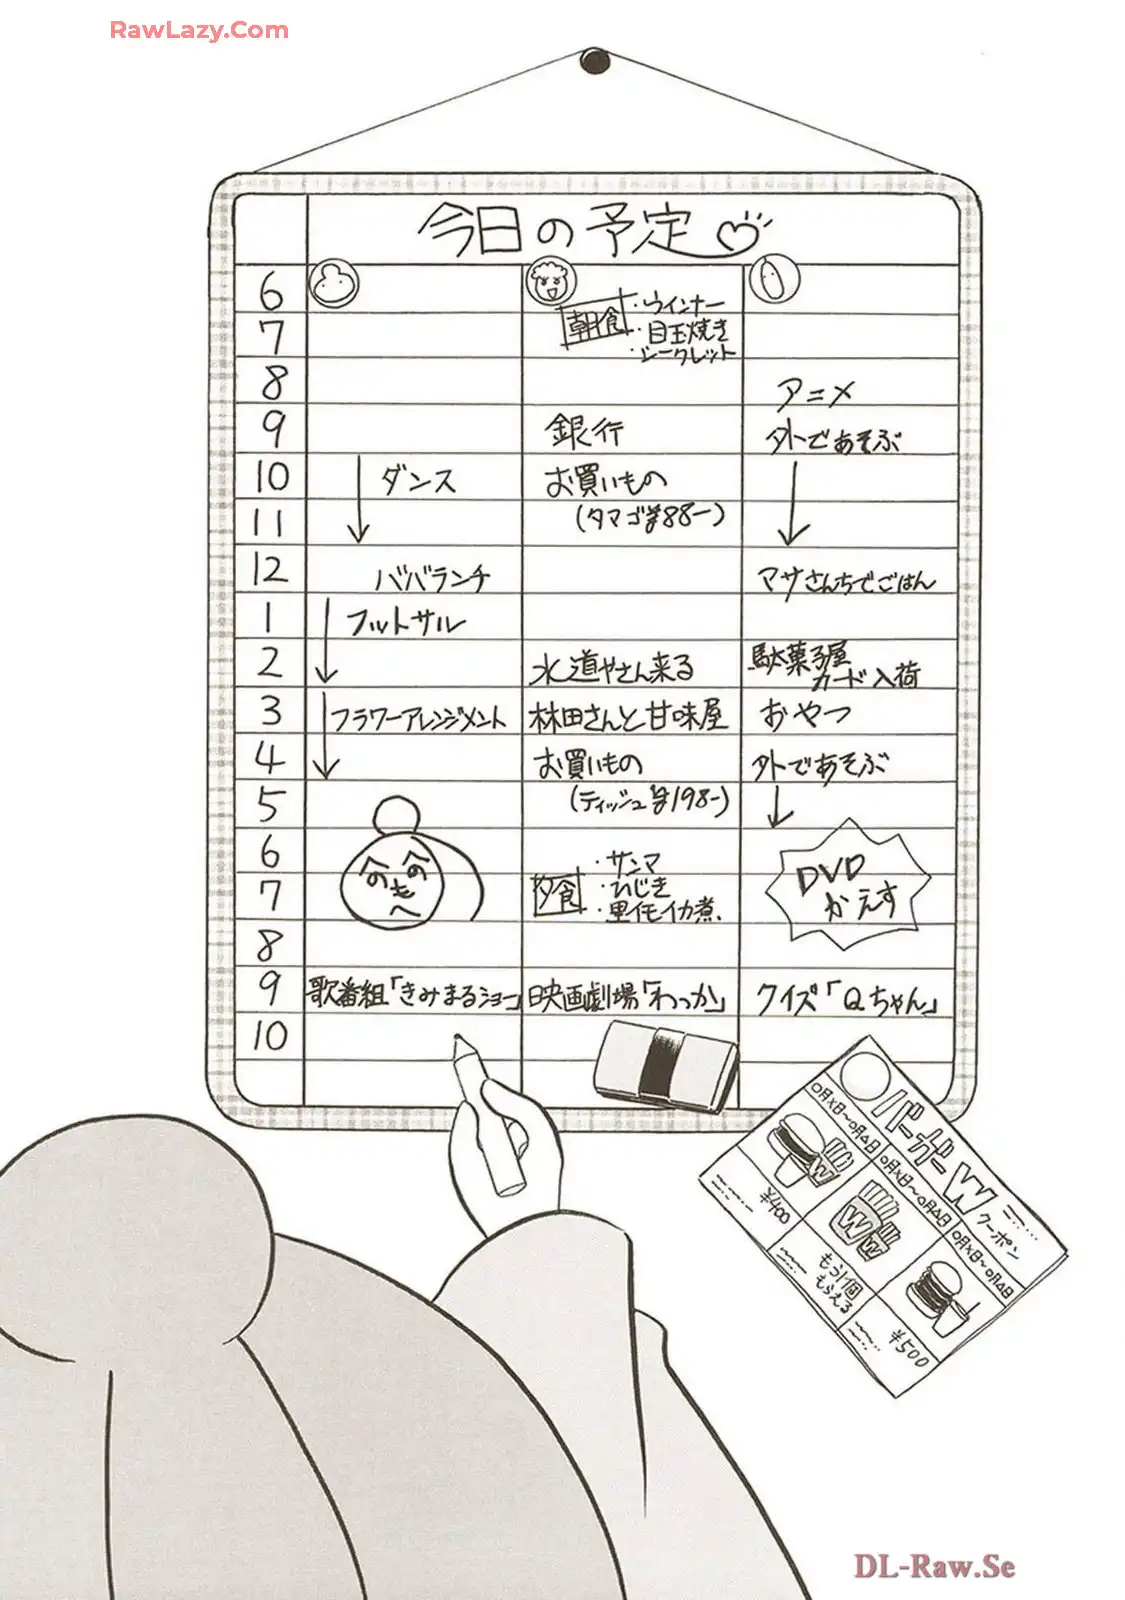 RawLazy.Com
今日の予定
6
7
8
9
10
11
12
1
2
3
4
5
6
7
8
9
10
ダンス
ババランチ
フットサル
フラワーアレンジメント
へのへのもへ
歌番組「きみまるショー」
朝食
・ウインナー
・目玉焼き
・シークレット
銀行
お買いもの
(タマゴ¥88-)
水道やさん来る
林田さんと甘味屋
お買いもの
(ティッシュ¥198-)
夕食
・サンマ
・ひじき
・里イモイカ煮
映画劇場「わっか」
アニメ
外であそぶ
マサさんちでごはん
駄菓子屋
カード入荷
おやつ
外であそぶ
DVD
かえす
クイズ「Qちゃん」
バーガーW
クーポン
〇月×日〜〇月△日
〇月×日〜〇月△日
〇月×日〜〇月△日
W
¥400
W
W
もう1個
もらえる
¥500
DL-Raw.Se